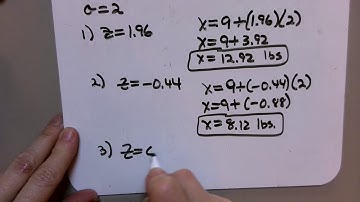 σ=2
1) z=1.96
x=9+(1.96)(2)
x=9+3.92
x=12.92 lbs
2) z=-0.44
x=9+(-0.44)(2)
x=9+(-0.88)
x=8.12 lbs.
3) z=